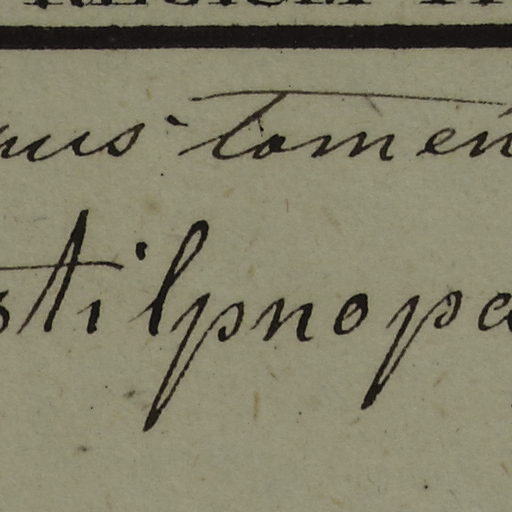 nus tomen
stilpnopa